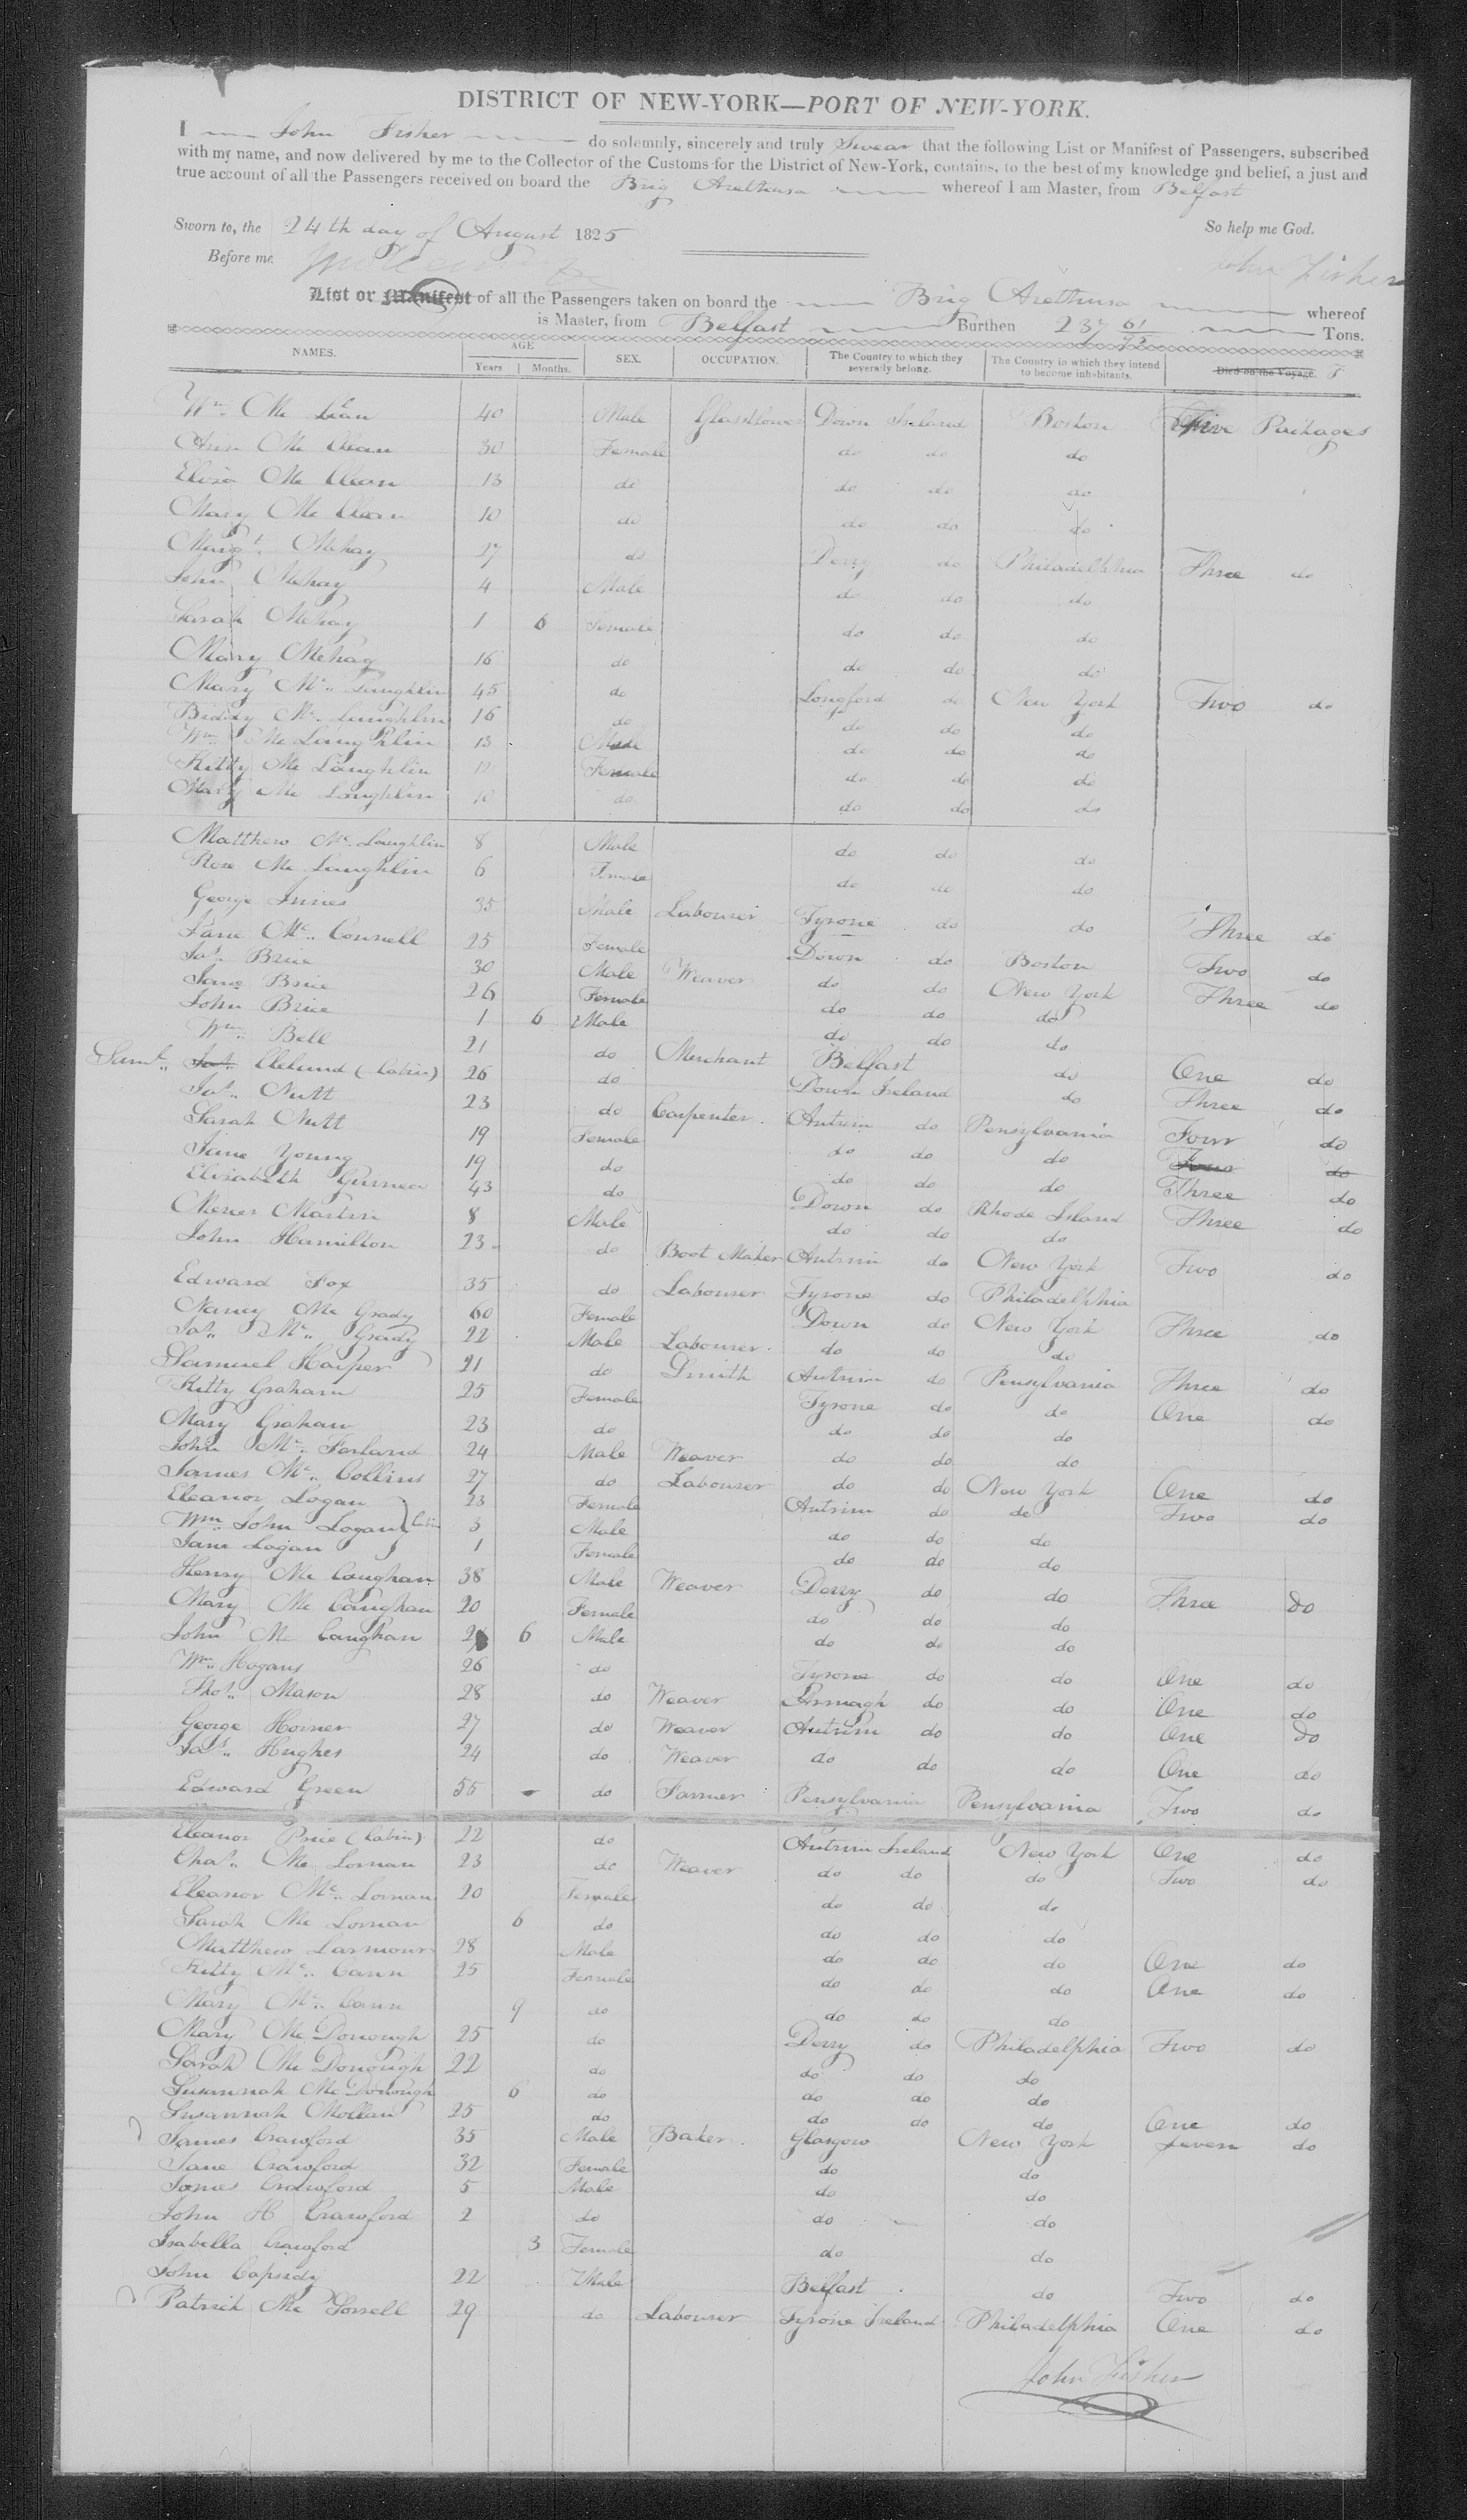 DISTRICT OF NEW-YORK—PORT OF NEW-YORK.
I John Fisher do solemnly, sincerely and truly Swear that the following List or Manifest of Passengers, subscribed
with my name, and now delivered by me to the Collector of the Customs for the District of New-York, contains, to the best of my knowledge and belief, a just and
true account of all the Passengers received on board the Brig Arethusa whereof I am Master, from Belfast
Sworn to, the 24th day of August 1825 So help me God.
Before me John Fisher
List or Manifest of all the Passengers taken on board the Brig Arethusa whereof
is Master, from Belfast Burthen 237 61/95 Tons.
NAMES. AGE Years Months. SEX. OCCUPATION. The Country to which they severally belong. The Country in which they intend to become inhabitants. Died on the Voyage.
Wm. Mc Lean 40 Male Down Ireland Boston Five Packages
Ann Mc Clean 30 Female do do do
Eliza Mc Clean 13 do do do do
Mary Mc Clean 10 do do do do
Margt. Mehay 17 do Derry do Philadelphia Three do
John Mehay 4 Male do do do
Sarah Mehay 1 6 Female do do do
Mary Mehay 16 do do do do
Mary Mc. Laughlin 45 do Longford do New York Two do
Biddy Mc. Laughlin 16 do do do do
Wm. Mc Laughlin 13 Male do do do
Kitty Mc Laughlin 12 Female do do do
Mary Mc Loughlin 10 do do do do
Matthew Mc. Loughlin 8 Male do do do
Rose Mc Laughlin 6 Female do do do
George Innes 35 Male Labourer Tyrone do do Three do
Jane Mc.. Connell 25 Female Down do Boston Two do
Jas. Brice 30 Male Weaver do do New York Three do
Jane Brice 26 Female do do do
John Brice 1 6 Male do do do
Wm. Bell 21 do Merchant Belfast do One do
Saml.. Jas. Cleland (Cabin) 26 do Down Ireland do Three do
Jas.. Nutt 23 do Carpenter Antrim do Pensylvania Four do
Sarah Nutt 19 Female do do do Four do
Jane Young 19 do do do do Three do
Elizabeth 43 do Down do Rhode Island Three do
Martin 8 Male do do do
John Hamilton 23 do Boot Maker Antrim do New York Two do
Edward Fox 35 do Labourer Tyrone do Philadelphia
Nancy Mc Grady 60 Female Down do New York Three do
Jas.. Mc.. Grady 22 Male Labourer do do do
Samuel Harper 21 do Smith Antrim do Pensylvania Three do
Kitty Graham 25 Female Tyrone do do One do
Mary Graham 23 do do do do
John Mc.. Farland 24 Male Weaver do do do
James Mc.. Collins 27 do Labourer do do New York One do
Eleanor Logan 23 Female Antrim do do Two do
Wm. John Logan } Cabin 3 Male do do do
Jane Logan 1 Female do do do
Henry Mc Caughan 38 Male Weaver Derry do do Three do
Mary Mc Caughan 20 Female do do do
John Mc Caughan 2 6 Male do do do
Wm.. Hogans 26 do Tyrone do do One do
Thos.. Mason 28 do Weaver Armagh do do One do
George Horner 27 do Weaver Antrim do do One do
Jas.. Hughes 24 do Weaver do do do One do
Edward Green 55 do Farmer Pensylvania Pensylvania Two do
Eleanor Price (Cabin) 22 do Antrim Ireland New York One do
Chas.. Mc. Lornan 23 do Weaver do do do Two do
Eleanor Mc.. Lornan 20 Female do do do
Sarah Mc Lornan 6 do do do do
Matthew Larmour 28 Male do do do One do
Kitty Mc.. Cann 25 Female do do do One do
Mary Mc.. Cann 9 do do do do
Mary Mc Donough 25 do Derry do Philadelphia Two do
Sarah Mc Donough 22 do do do do
Susannah Mc Donough 6 do do do do
Susannah Mollan 25 do do do do One do
James Crawford 35 Male Baker Glasgow New York Seven do
Jane Crawford 32 Female do do
James Crawford 5 Male do do
John H Crawford 2 do do do
Isabella Crawford 3 Female do do
John Capsidy 22 Male Belfast do Two do
Patrick Mc Sorrell 29 do Labourer Tyrone Ireland Philadelphia One do
John Fisher